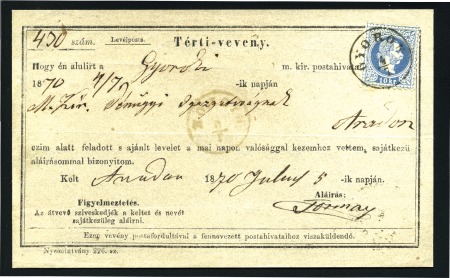 430 szám. Levélposta. Térti-vevény.
Hogy én alulirt a Gyoroki m. kir. postahivatal
1870 4/7 -ik napján
M. kir. Pénzügyi Igazgatóságnak
Aradon
czim alatt feladott s ajánlt levelet a mai napon valósággal kezemhez vettem, sajátkezü
aláirásommal bizonyitom.
Kelt Aradon 1870 Julius 5 -ik napján.
Figyelmeztetés. Aláirás:
Az átvevő sziveskedjék a keltet és nevét
sajátkezüleg aláirni.
Ezen vevény postafordultával a fennevezett postahivatalhoz visszaküldendő.
Nyomtatvány 276. sz.
GYOROK
10 KR.